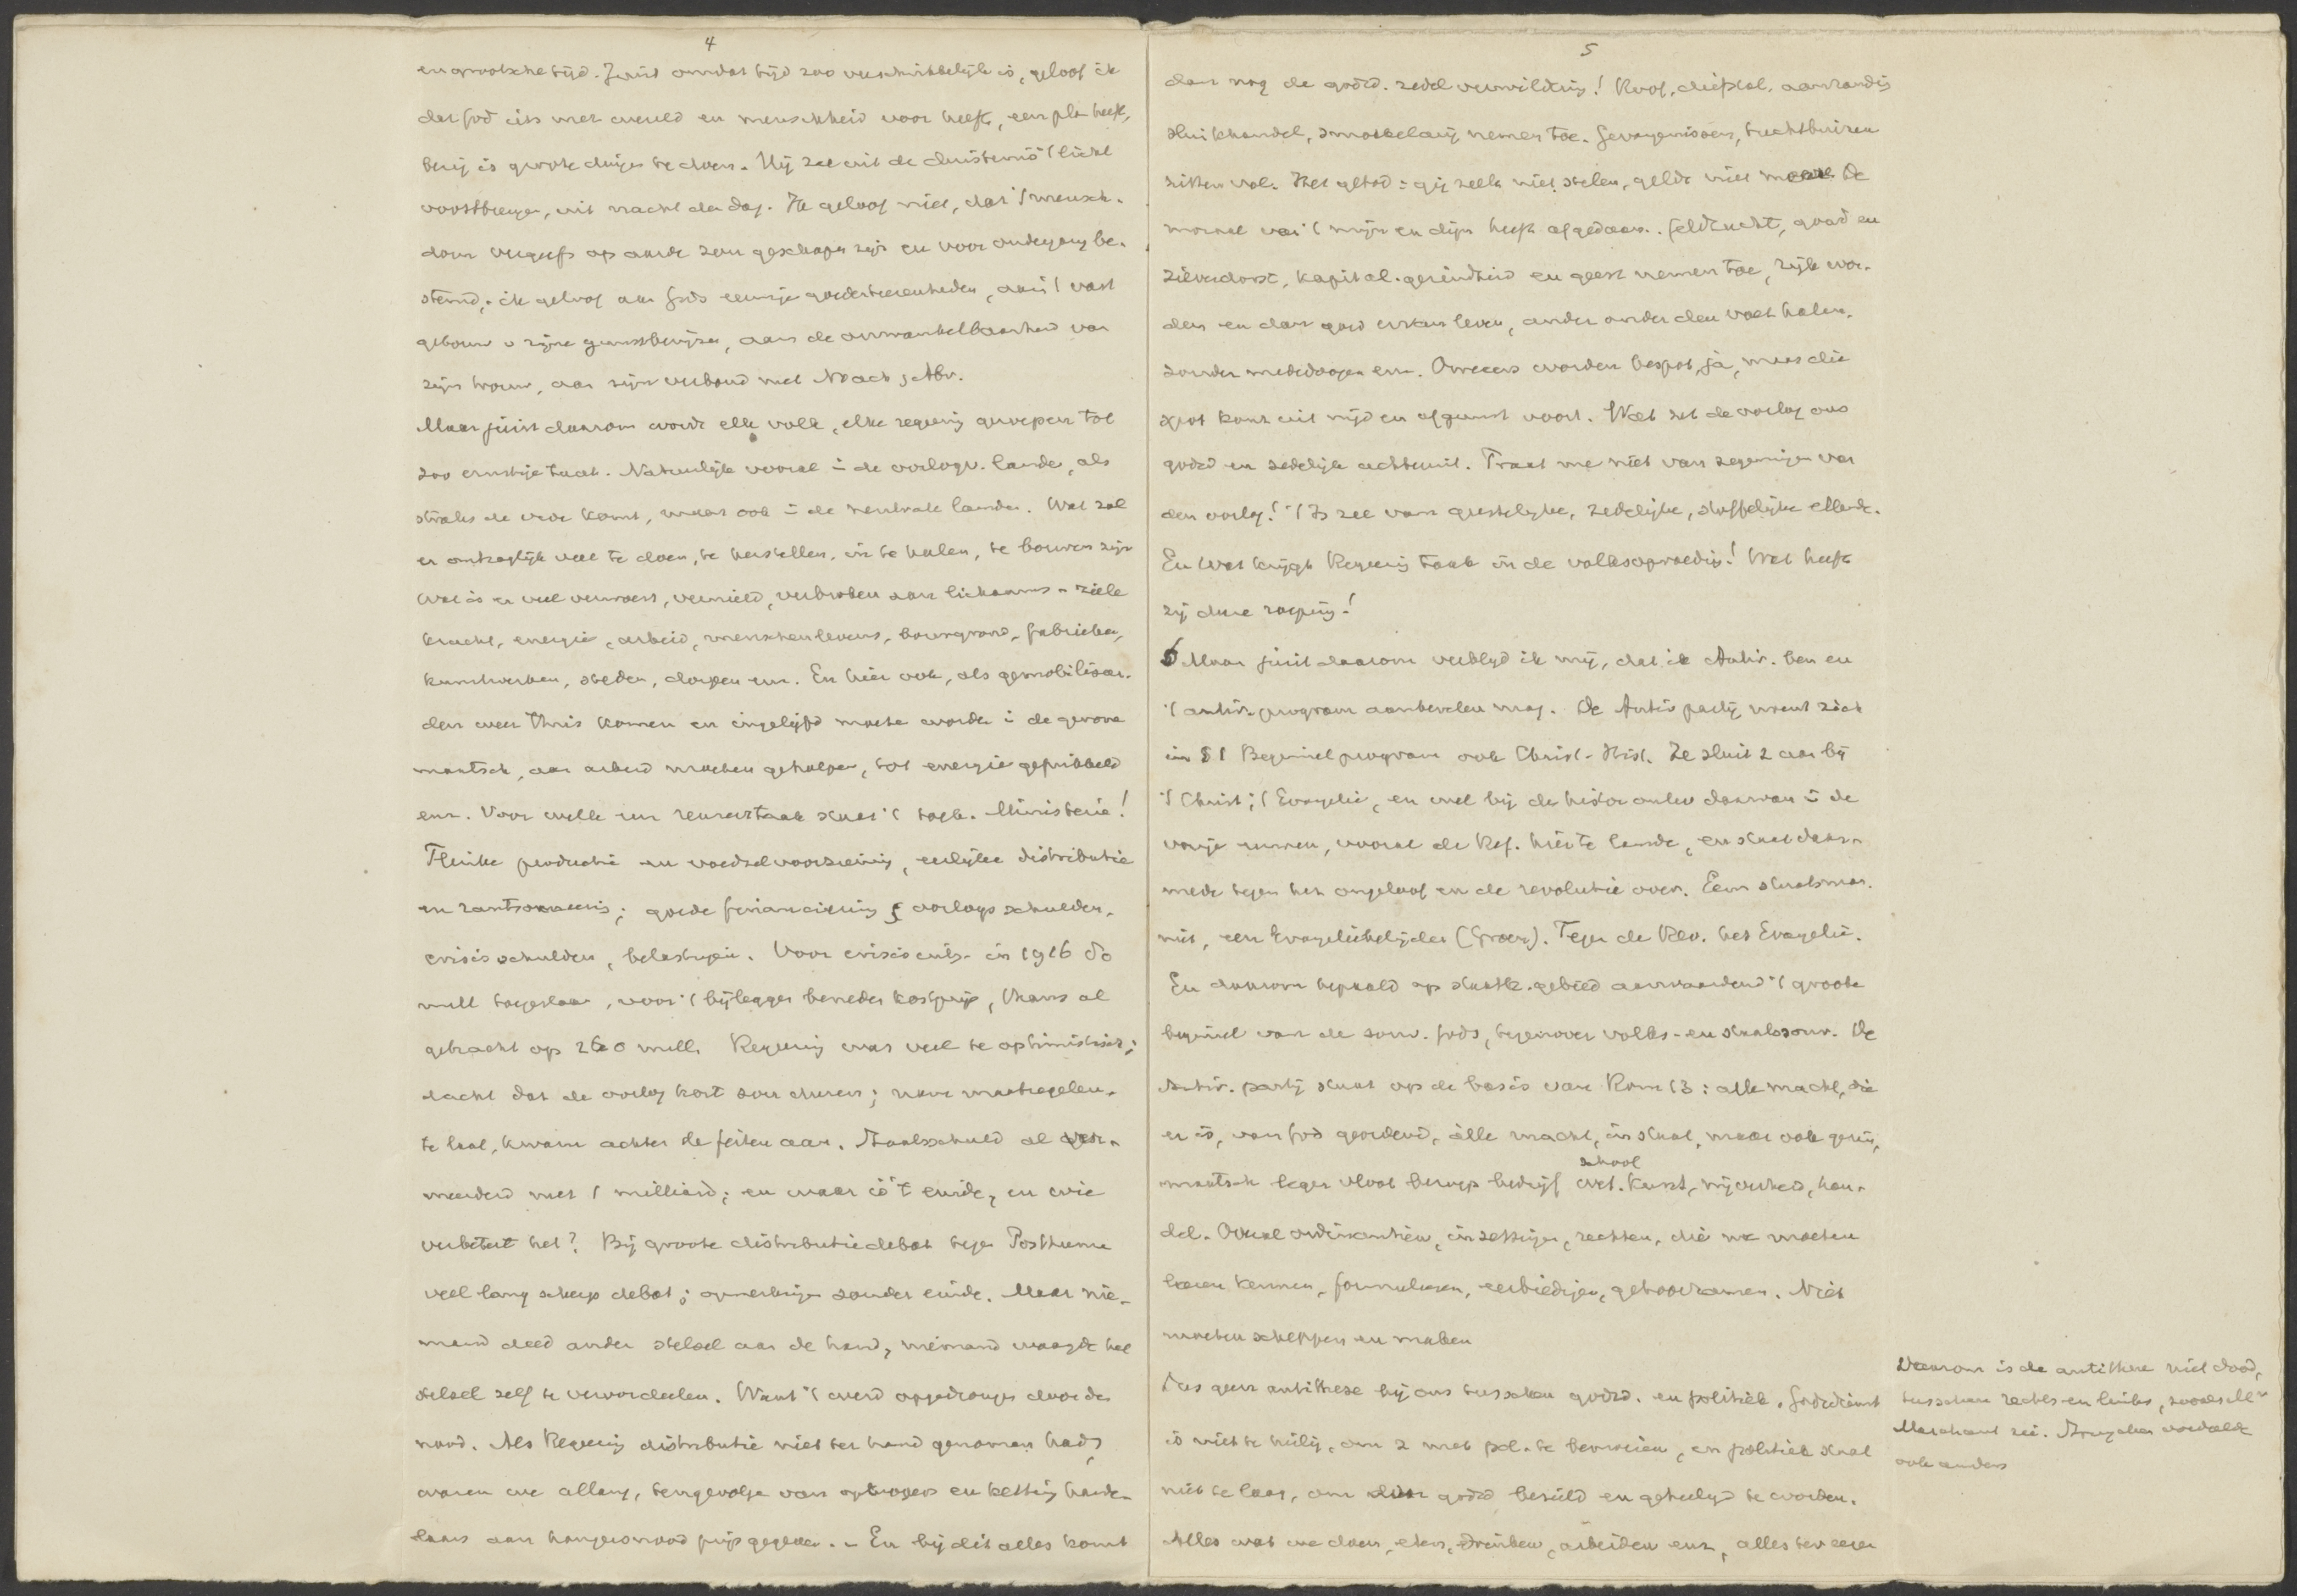 4
en grootsche tijd. Juist omdat tijd zoo verschrikkelijk is, geloof ik
dat God iets met wereld en menschheid voor heeft, een plan heeft,
bezig is groote dingen te doen. Hij zal uit de duisternis 't licht
voortbrengen, uit nacht den dag. Ik geloof niet, dat 't mensch-
dom vergeefs op aarde zou geschapen zijn en voor ondergang be-
stemd, ik geloof aan Gods eeuwige goedertierenheden, aan 't vast
gebouw v zijne gunstbewijzen, aan de onwankelbaarheid van
zijn trouw, aan zijn verbond met Noach, Abr.
Maar juist daarom wordt elk volk, elke regeering geroepen tot
zoo ernstige taak. Natuurlijk vooral in de oorlogv. landen, als
straks de vrede komt, maar ook in de neutrale landen. Wat zal
er ontzaglijk veel te doen, te herstellen, in te halen, te bouwen zijn
Wat is er veel verwoest, vernield, verbroken aan lichaams- ziels
kracht, energie, arbeid, menschenlevens, bouwgrond, fabrieken,
kunstwerken, steden, dorpen enz. En hier ook, als gemobiliseer-
den weer thuis komen en ingelijfd moeten worden in de gewone
maatsch, aan arbeid moeten geholpen, tot energie geprikkeld
enz. Voor welk een reuzentaak staat 't toek. Ministerie!
Flinke productie en voedselvoorziening, eerlijke distributie
en rantsoeneering; goede financiering v oorlogsschulden,
crisisschulden, belastingen. Voor crisisuitg. in 1916 50
mill toegestaan, voor 't bijleggen beneden kostprijs, thans al
gebracht op 260 mill. Regeering was veel te optimistisch;
dacht dat de oorlog kort zou duren; nam maatregelen
te laat, kwam achter de feiten aan. Staatsschuld al ver-
meerderd met 1 milliard; en waar is 't einde, en wie
verbetert het? Bij groote distributiedebat tegen Posthuma
veel lang scherp debat; opmerkingen zonder einde. Maar nie-
mand deed ander stelsel aan de hand, niemand waagde het
stelsel zelf te veroordeelen. Want 't werd opgedrongen door den
nood. Als Regeering distributie niet ter hand genomen had,
waren we allang, tengevolge van opkoopers en ketting hande-
laars aan hongersnood prijs gegeven. - En bij dit alles komt
5
dan nog de godsd. zedel verwildering! Roof, diefstal, aanranding
sluikhandel, smokkelarij nemen toe. Gevangenissen, tuchthuizen
zitten vol. Het gebod: gij zult niet stelen, geldt niet meer. De
moraal van 't mijn en dijn heeft afgedaan. Geldzucht, goud en
zilverdorst, kapital. gezindheid en geest nemen toe, rijk wor-
den en dan goed ervan leven, ander onder den voet halen,
zonder mededoogen enz. Oweeers worden bespot, ja, maar die
spot komt uit nijd en afgunst voort. Wat zet de oorlog ons
godsd en zedelijk achteruit. Praat me niet van zegeningen van
den oorlog! 't Is zee van geestelijke, zedelijke, stoffelijke ellende.
En wat krijgt Regeering taak in de volksopvoeding! Wat heeft
zij dure roeping!
6 Maar juist daarom verblijd ik mij, dat ik Antir. ben en
't antir. program aanbevelen mag. De Antir partij noemt zich
in § 1 Beginselprogram ook Christ.-Hist. Ze sluit z aan bij
't Christ; 't Evangelie, en wel bij de histor ontw daarvan in de
vorige eeuwen, vooral de Ref. hier te lande, en staat daar-
mede tegen het ongeloof en de revolutie over. Een staatsman
niet, een Evangeliebelijder (Groen). Tegen de Rev. het Evangelie.
En daarom bepaald op staatk. gebied aanvaardend 't groote
beginsel van de souv. Gods, tegenover volks- en staatssouv. De
Antir. partij staat op de basis van Rom 13: alle macht, die
er is, van God geordend, alle macht, in staat, maar ook gezin,
maatsch leger vloot beroep bedrijf school wet. kunst, nijverheid, han-
del. Overal ordinantiën, inzettingen, rechten, die we moeten
leeren kennen, formuleeren, eerbiedigen, gehoorzamen. Niet
moeten scheppen en maken
Dus geen antithese bij ons tusschen godsd. en politiek. Godsdienst
is niet te heilig, om z met pol. te bemoeien, en politiek staat
niet te laag, om door godsd bezield en geheiligd te worden.
Alles wat we doen, eten, drinken, arbeiden enz, alles ter eere
Daarom is de antithese niet dood,
tusschen rechts en links, zooals Mr
Marchant zei. Troelstra oordeelt
ook anders